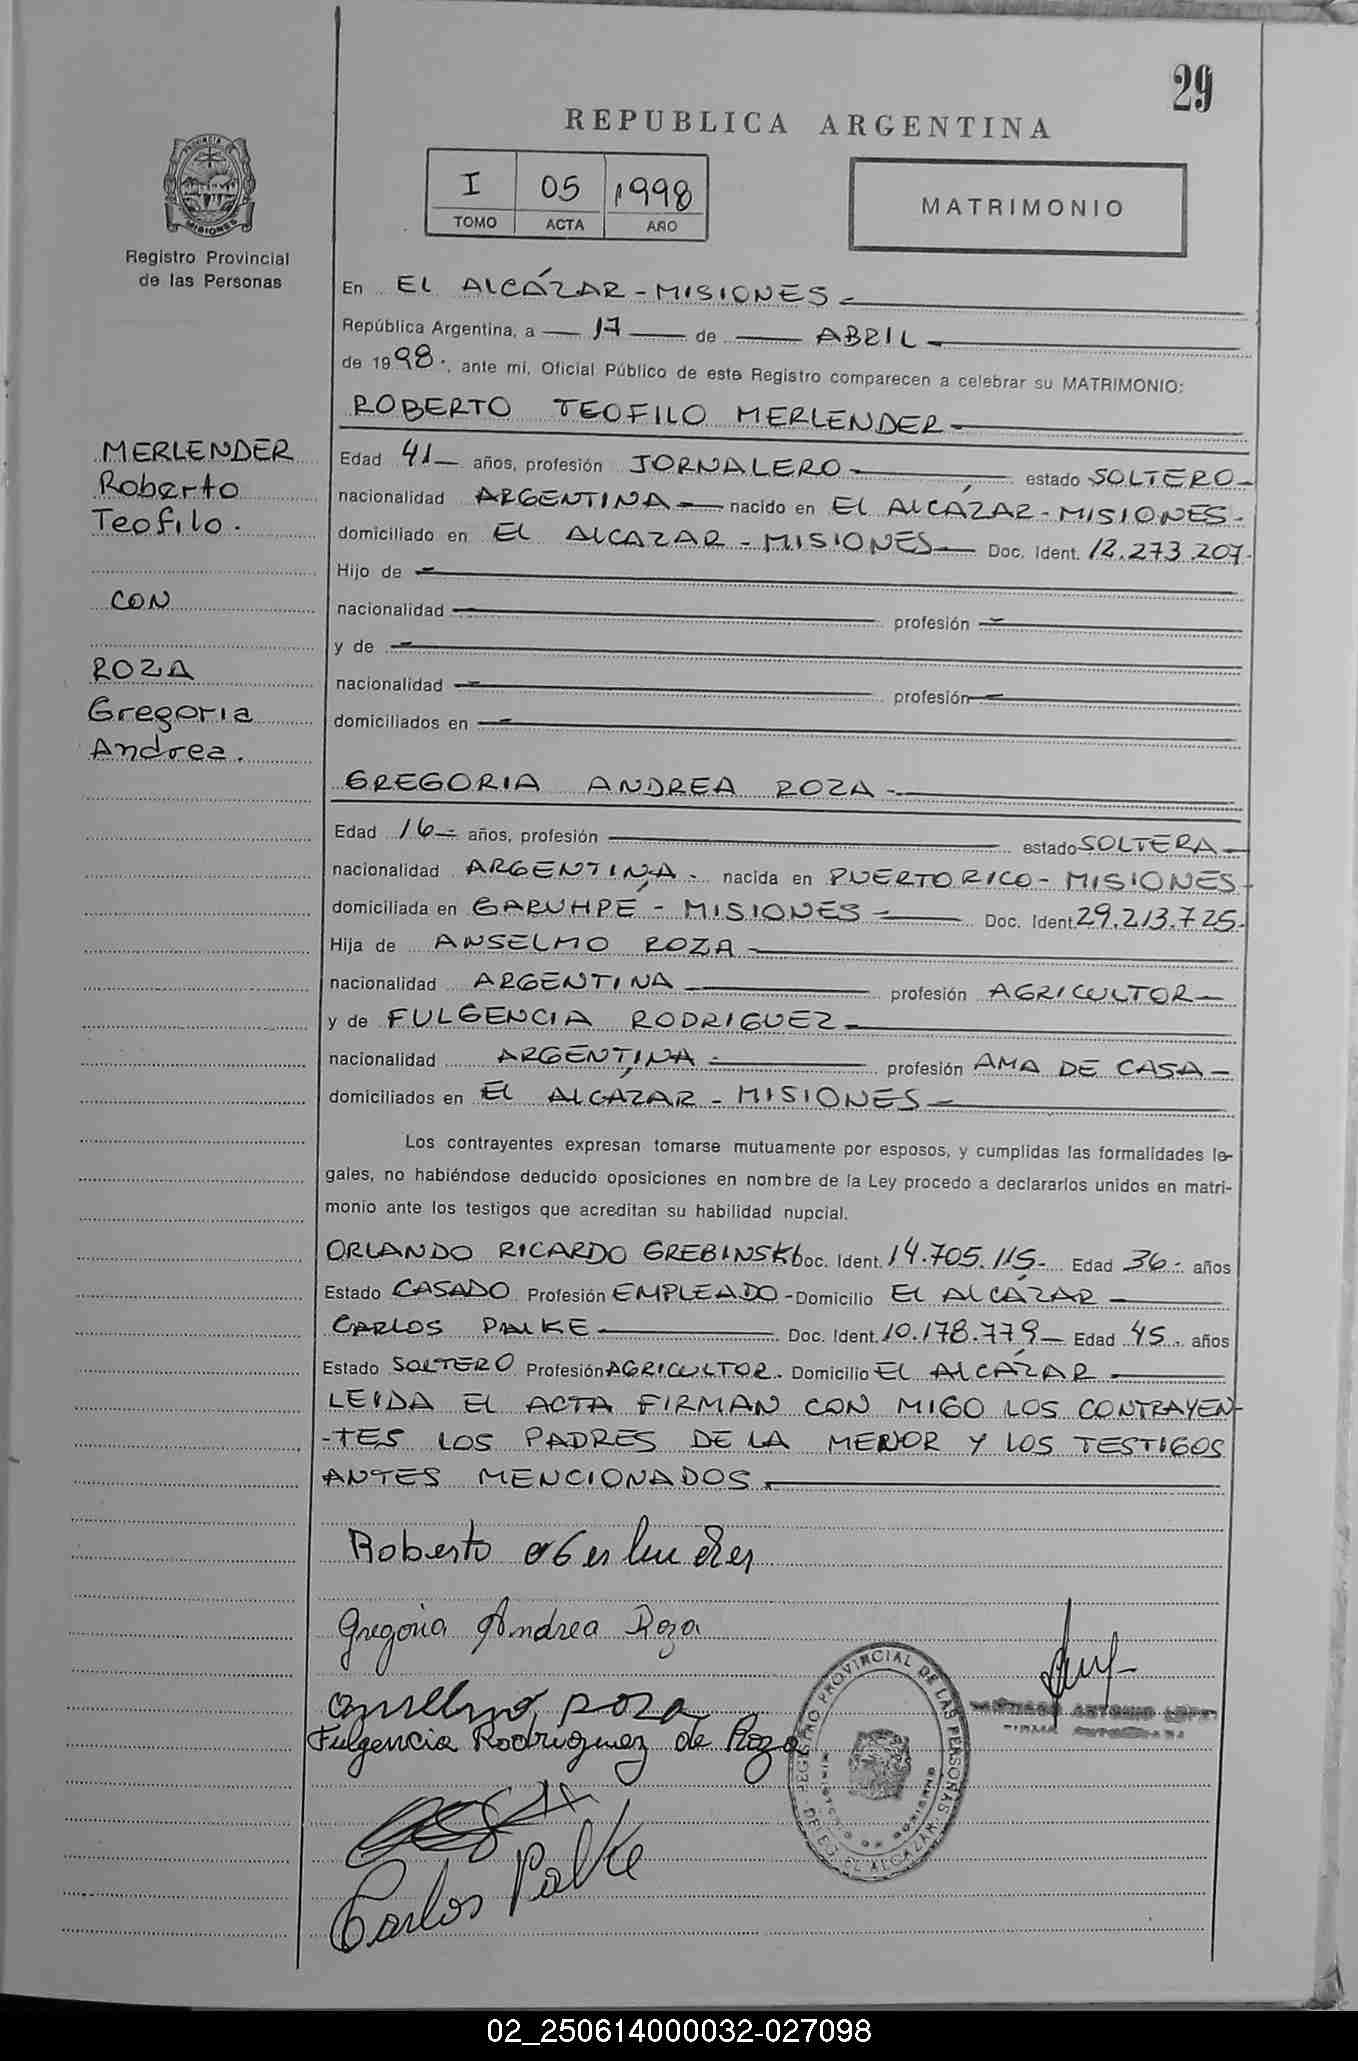 29
REPUBLICA ARGENTINA
I 05 1998
TOMO ACTA AÑO
MATRIMONIO
PROVINCIA DE MISIONES
Registro Provincial
de las Personas
En EL ALCÁZAR - MISIONES -
República Argentina, a 17 de ABRIL -
de 1998., ante mí, Oficial Público de este Registro comparecen a celebrar su MATRIMONIO:
ROBERTO TEOFILO MERLENDER -
MERLENDER
Roberto
Teofilo.
CON
ROZA
Gregoria
Andrea.
Edad 41 años, profesión JORNALERO - estado SOLTERO -
nacionalidad ARGENTINA - nacido en EL ALCÁZAR - MISIONES -
domiciliado en EL ALCAZAR - MISIONES - Doc. Ident. 12.273.207-
Hijo de -
nacionalidad - profesión -
y de -
nacionalidad - profesión -
domiciliados en -
GREGORIA ANDREA ROZA -
Edad 16 - años, profesión estado SOLTERA -
nacionalidad ARGENTINA - nacida en PUERTO RICO - MISIONES -
domiciliada en GARUHPÉ - MISIONES - Doc. Ident. 29.213.725-
Hija de ANSELMO ROZA -
nacionalidad ARGENTINA - profesión AGRICULTOR -
y de FULGENCIA RODRIGUEZ -
nacionalidad ARGENTINA - profesión AMA DE CASA -
domiciliados en EL ALCÁZAR - MISIONES -
Los contrayentes expresan tomarse mutuamente por esposos, y cumplidas las formalidades le-
gales, no habiéndose deducido oposiciones en nombre de la Ley procedo a declararlos unidos en matri-
monio ante los testigos que acreditan su habilidad nupcial.
ORLANDO RICARDO GREBINSKI Doc. Ident. 14.705.115- Edad 36- años
Estado CASADO Profesión EMPLEADO - Domicilio EL ALCÁZAR -
CARLOS PALKE - Doc. Ident. 10.178.779 - Edad 45. años
Estado SOLTERO Profesión AGRICULTOR. Domicilio EL ALCÁZAR -
LEIDA EL ACTA FIRMAN CON MIGO LOS CONTRAYEN-
-TES LOS PADRES DE LA MENOR Y LOS TESTIGOS
ANTES MENCIONADOS. -
Roberto Merlender
Gregoria Andrea Roza
Anselmo roza
Fulgencia Rodriguez de Roza
Carlos Palke
REGISTRO PROVINCIAL DE LAS PERSONAS
MINISTERIO DE GOBIERNO
DELEG. EL ALCAZAR
SANTIAGO ANTONIO LOPEZ
FIRMA AUTORIZADA
02_250614000032-027098